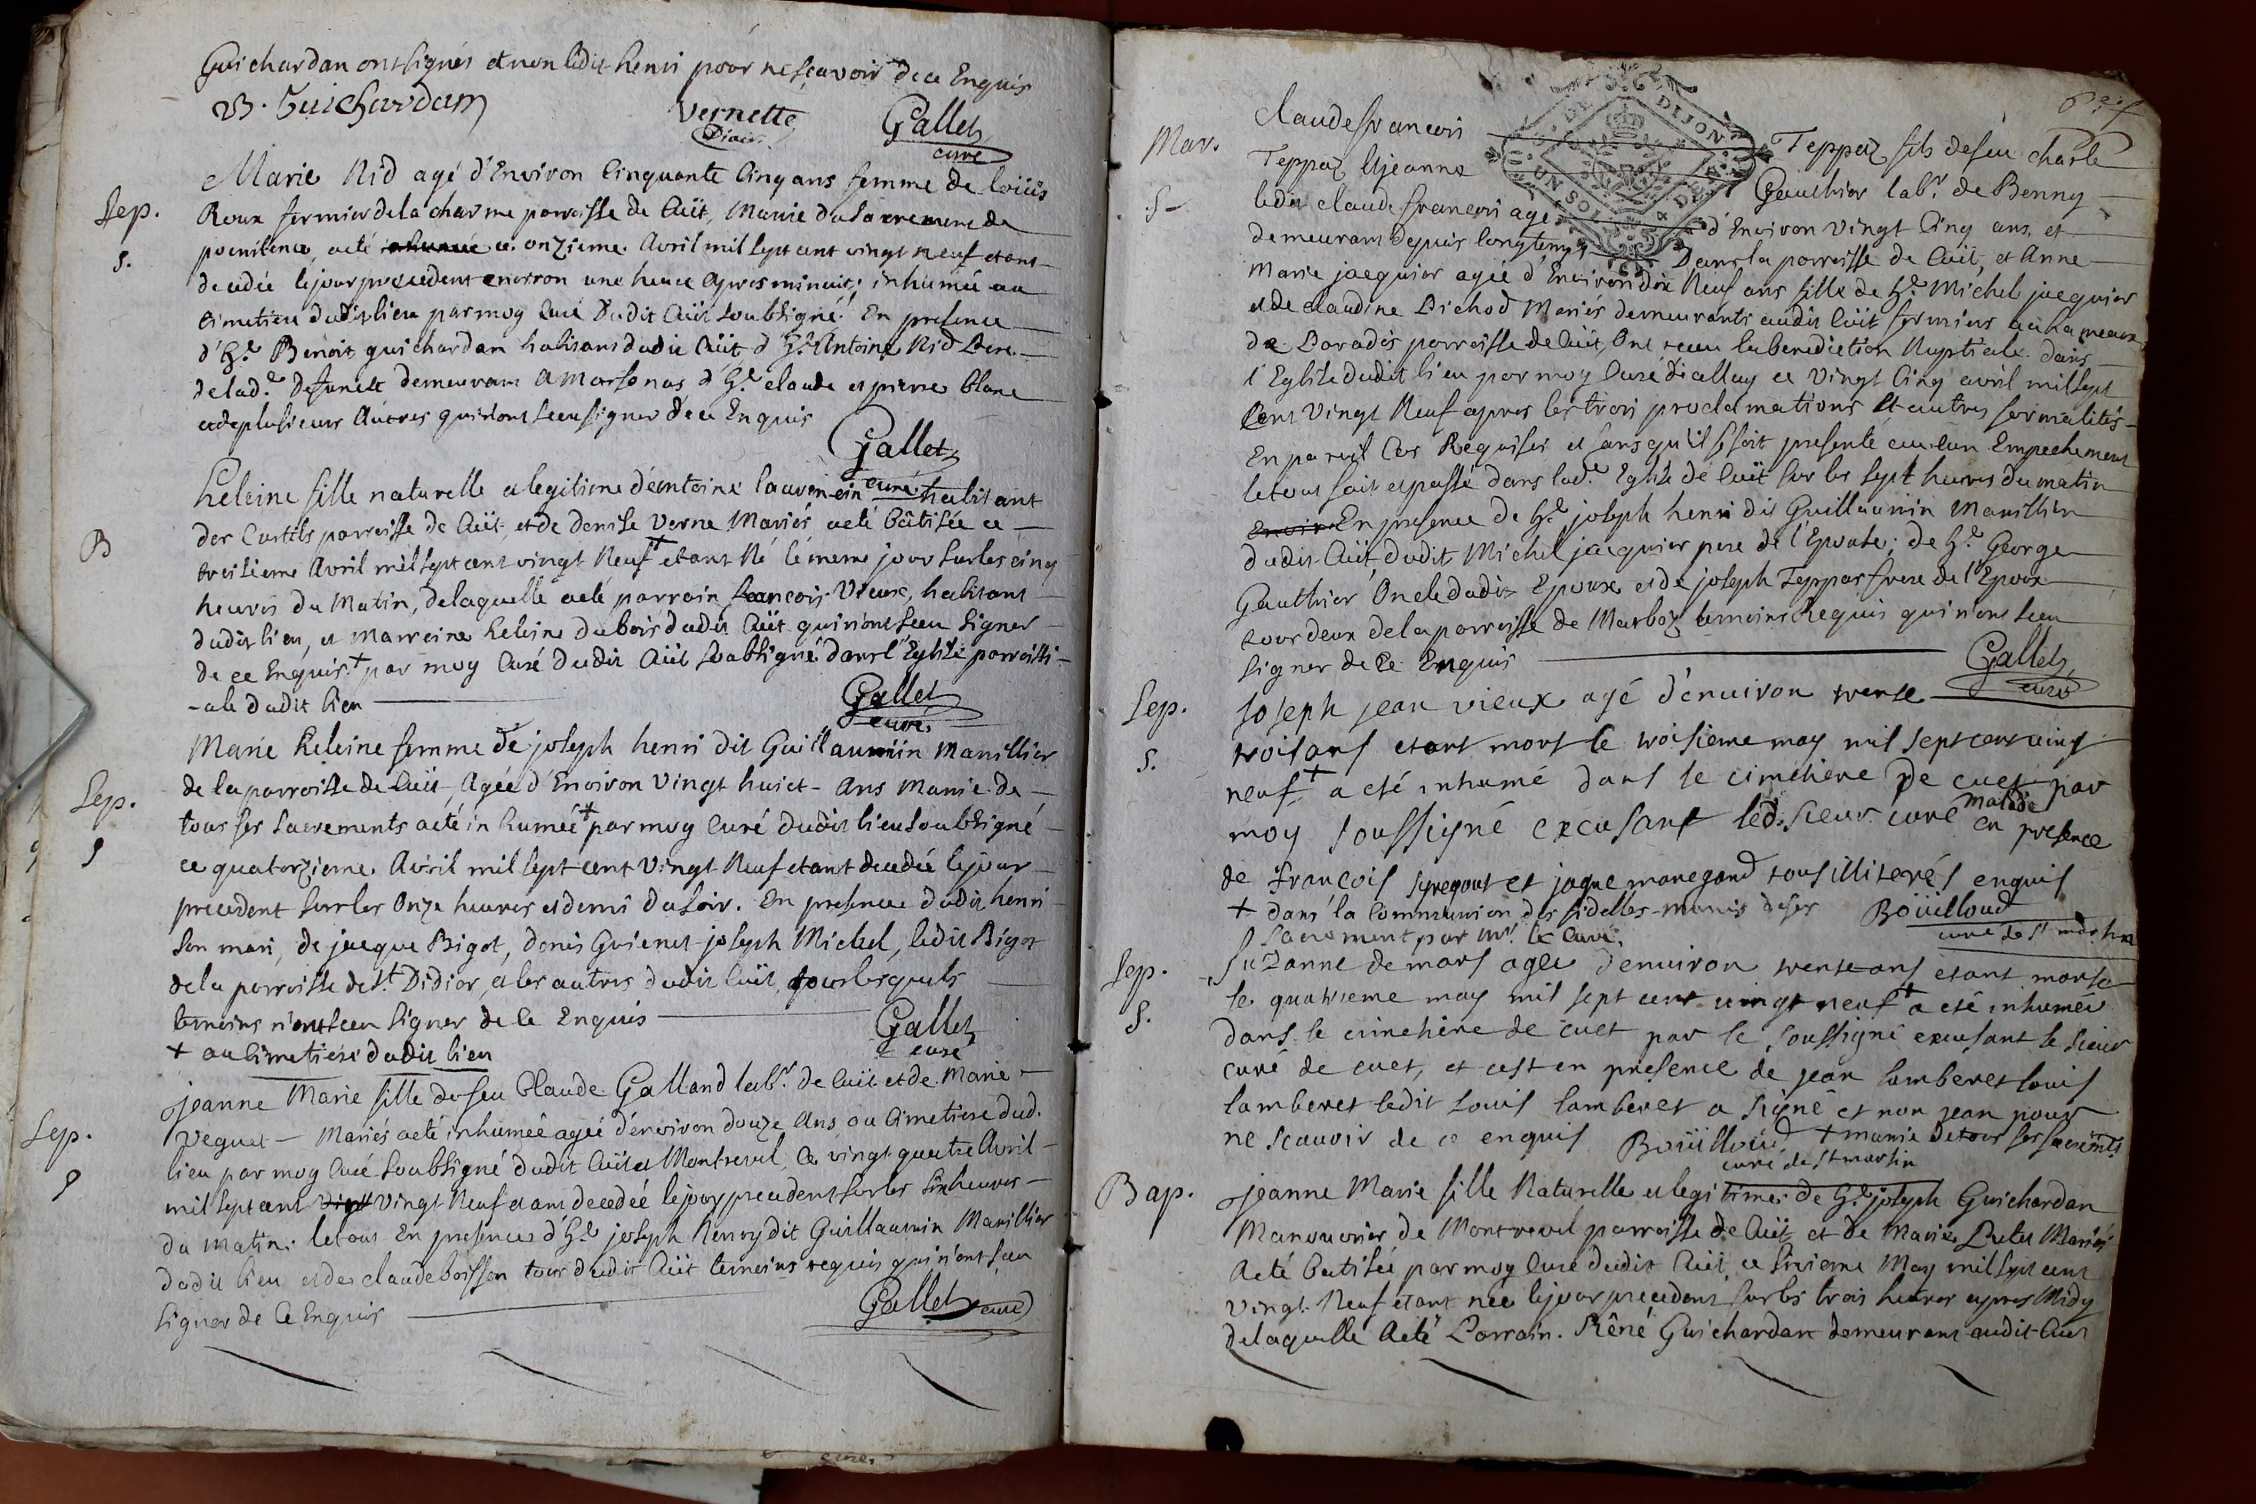 Guichardan ont signés et non ledit henri pour ne scavoir de ce Enquis
B. Guichardan
Vernette
Diacr.
Gallet
curé
Sep.
S.
Marie Nid agé d'Environ Cinquante Cinq ans femme de loüis
Roux fermier de la charme parroisse de Cüit, Munie du Sacrement de
poenitence, aeté inhumée ce onzieme Avril mil sept cent vingt neuf etant
decedée le jour precedent environ une heure apres minuit; inhumée au
Cimetiere dudit lieu par moy Curé dudit Cüit soubsigné. En presence
d'hle Benoit guichardan habitant dudit Cüit d'hle Antoine Nid Pere
de lade Defuncte demeurant a Marsonas d'hle claude et pierre blanc
et de plusieurs Autres qui n'ont sceu signer de ce Enquis
Gallet
curé
B
heleine fille naturelle et legitime d'antoine Sauvonein habitant
des Curtils parroisse de Cüit, et de denise Verne Mariés aeté bâtisée ce
treisieme Avril mil sept cent vingt Neuf + etant Né le meme jour sur les cinq
heures du Matin, de laquelle aeté parrain francois Vieux, habitant
dudit lieu, et Marreine heleine dubois dudit Cüit qui n'ont sceu signer
de ce Enquis + par moy Curé dudit Cüit soubsigné dans l'Eglise parroissi-
-ale dudit lieu
Gallet
curé
Sep.
S
Marie heleine femme de joseph henri dit Guillaumin Manillier
de la parroisse de Cüit, Agée d'Environ Vingt huict - Ans Munie de
tous ses sacrements aeté in humée + par moy Curé dudit lieu soubsigné
ce quatorzieme Avril mil sept cent vingt Neuf etant decedée le jour
precedent sur les Onze heures et demi du soir. En presence dudit henri
son mari, de jacque Bigot, denis Guienet joseph Michel, ledit Bigot
de la parroisse de St. Didier, et les autres dudit Cüit, tous lesquels
temoins n'ont sceu signer de Ce Enquis
Gallet
curé
+ au Cimetiere dudit lieu
Sep.
S
jeanne Marie fille de feu Claude Galland labr. de Cüit et de Marie
Veguet - Mariés aeté inhumée agée d'environ douze Ans au Cimetiere dud.
lieu par moy Curé soubsigné dudit Cüit et Montrevel, Ce vingt quatre Avril
mil sept cent Vingt Vingt Neuf etant decedée le jour precedent sur les six heures
du Matin. le tout En presence d'hle joseph Henry dit Guillaumin Manillier
dudit lieu et de claude boisson tous dudit Cüit temoins requis qui n'ont sceu
signer de Ce Enquis
Gallet curé
DE DIJON
UN SOL 4 DE
Mar.
S
Claude francois Teppaz fils de feu charle
Teppaz et jeanne Gauthier labr. de Benny
ledit claude francois agé d'Environ Vingt Cinq ans, et
demeurant depuis longtemps Dans la parroisse de Cüit, et Anne
Marie jacquier agée d'Environ dix Neuf ans fille de hle Michel jacquier
et de claudine Pichod Mariés demeurants audit Cüit fermiers au hameau
de Baradés parroisse de Cüit, Ont receu la benediction Nuptiale dans
l'Eglise dudit lieu par moy Curé d'icelluy ce Vingt Cinq avril mil sept
Cent Vingt Neuf apres les trois proclamations et autres formalités
En pareil Cas Requises et sans qu'il s'y soit presenté aucun Empechement
le tout fait et passé dans lade Eglise de Cüit sur les sept heures du matin
En presence de hle joseph henri dit Guillaumin Manillier
dudit Cüit, dudit Michel jacquier pere de l'Epouse; de hle George
Gauthier Oncle dudit Epoux et de joseph Teppaz frere de l'Epoux
tous deux de la parroisse de Marboz temoins Requis qui n'ont sceu
signer de Ce Enquis
Gallet
curé
Sep.
S.
Joseph jean vieux agé d'enuiron trente
trois ans etant mort le troisieme may mil sept cent uingt
neuf + a eté inhumé dans le cimetiere de cuet par
moy soussigné excusant led. sieur curé malade en presence
de françois syregout et jaque maregand tous illiterés enquis
+ dans la Communion des fidelles munis de ses
Sacrement par mr. le Curé.
Boüilloud
curé de St martin
Sep.
S.
Suzanne de mars agée denuiron trente ans etant morte
le quatrieme may mil sept cent uingt neuf + a eté inhumée
dans le cimetiere de cuet par le soussigné excusant le sieur
curé de cuet, et cest en presence de jean lamberet louis
lamberet ledit louis lamberet a signé et non jean pour
ne scauoir de ce enquis
Boüilloud + munie de tous ses sacremts.
curé de St martin
Bap.
jeanne Marie fille Naturelle et legitime de hle joseph Guichardan
Manouvrier de Montrevel parroisse de Cüit et de Marie Putet Mariés
Aeté batisée par moy Curé dudit Cüit ce Sixieme May mil sept cent
Vingt Neuf etant née le jour precedent sur les trois heures apres Midy
de laquelle Aeté Parrain. Rêné Guichardan demeurant audit Cuet